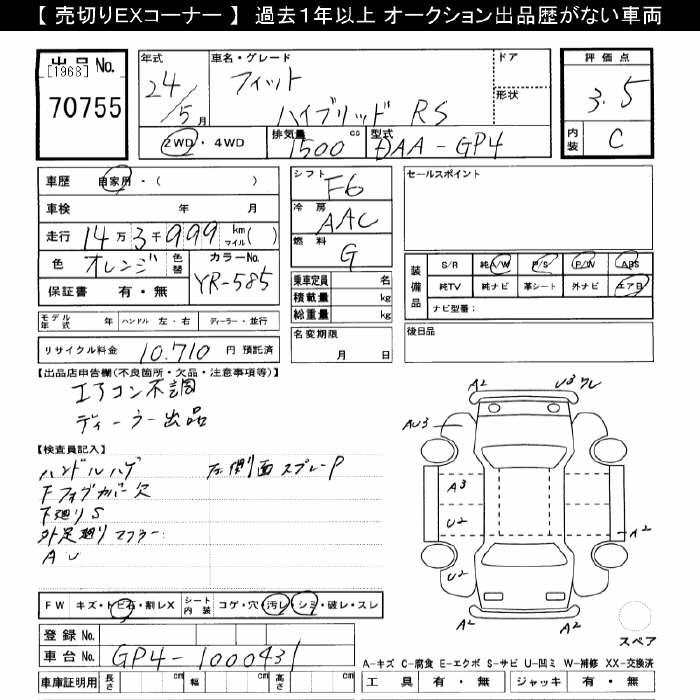 【 売切りEXコーナー 】 過去１年以上 オークション出品歴がない車両
出品 No.
[1968]
70755
年式
24/5 月
車名・グレード
フィット
ハイブリッド RS
ドア
形状
評価点
3.5
内装 C
2WD ・ 4WD
排気量 1500 cc
型式 DAA-GP4
車歴 自家用 ・ ( )
車検 年 月
走行 14 万 3 千 999 km マイル ( )
色 オレンジ 色替 カラーNo. YR-585
保証書 有 ・ 無
シフト F6
冷房 AAC
燃料 G
乗車定員 名
積載量 kg
総重量 kg
名変期限
月 日
セールスポイント
装備品
S/R 純A/W P/S P/W ABS
純TV 純ナビ 革シート 外ナビ エアB
ナビ型番：
後日品
モデル年式 年 ハンドル 左 ・ 右 ディーラー ・ 並行
リサイクル料金 10,710 円 預託済
【出品店申告欄(不良箇所・欠品・注意事項等)】
エアコン不調
ディーラー出品
【検査員記入】
ハンドルハゲ 左側面スプレーP
Fフォグカバー欠
下廻りS
外足廻りマフラー:
AU
A2
U3 ワレ
AU3
A3
U2
A2
U2
A2
A2
スペア
FW キズ・トビ石・割レX シート内装 コゲ・穴・汚レ・シミ・破レ・スレ
登録 No.
車台 No. GP4-1000431
車庫証明用 長さ cm 幅 cm 高さ cm
A-キズ C-腐食 E-エクボ S-サビ U-凹ミ W-補修 XX-交換済
工具 有 ・ 無 ジャッキ 有 ・ 無